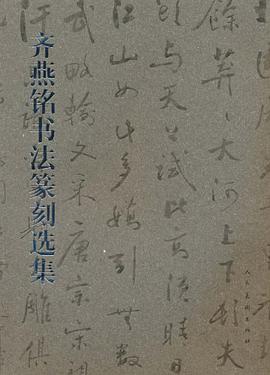 餘莽〻大河上下頓失
欲与天公試比高須晴日
江山如此多嬌引無數
武略輸文采唐宗宋祖
汗
雕俱
齐燕铭书法篆刻选集
人民美术出版社